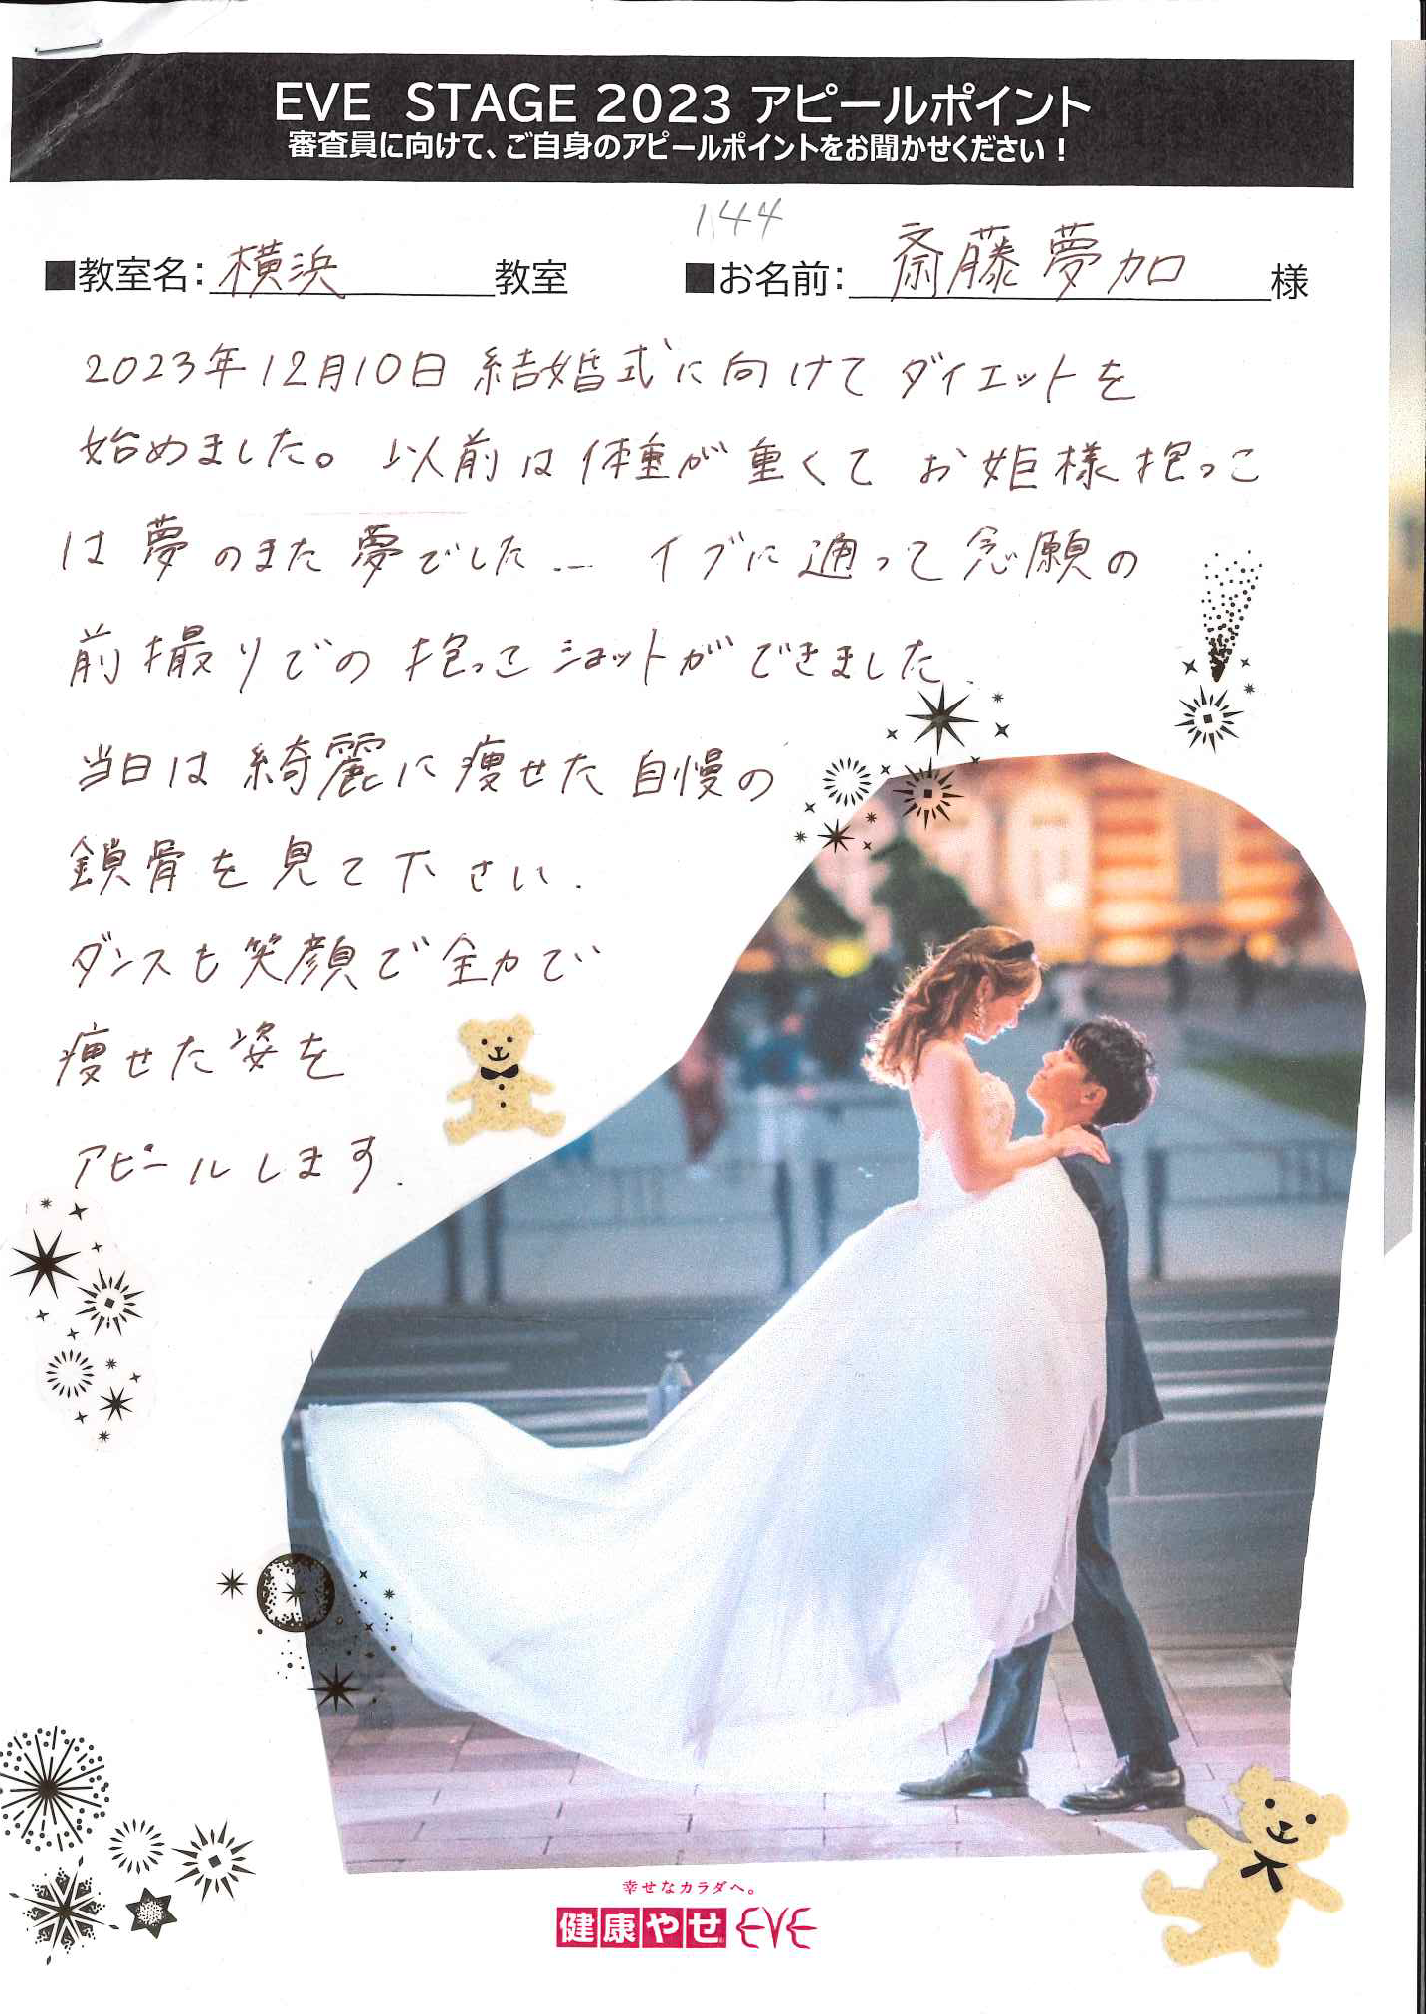 EVE STAGE 2023 アピールポイント
審査員に向けて、ご自身のアピールポイントをお聞かせください！
144
■教室名：横浜 教室 ■お名前：斎藤夢加 様
2023年12月10日 結婚式に向けてダイエットを
始めました。以前は体重が重くてお姫様抱っこ
は夢のまた夢でした... イブに通って念願の
前撮りでの抱っこショットができました.
当日は綺麗に痩せた自慢の
鎖骨を見て下さい.
ダンスも笑顔で全力で
痩せた姿を
アピールします.
幸せなカラダへ。
健康やせ EVE